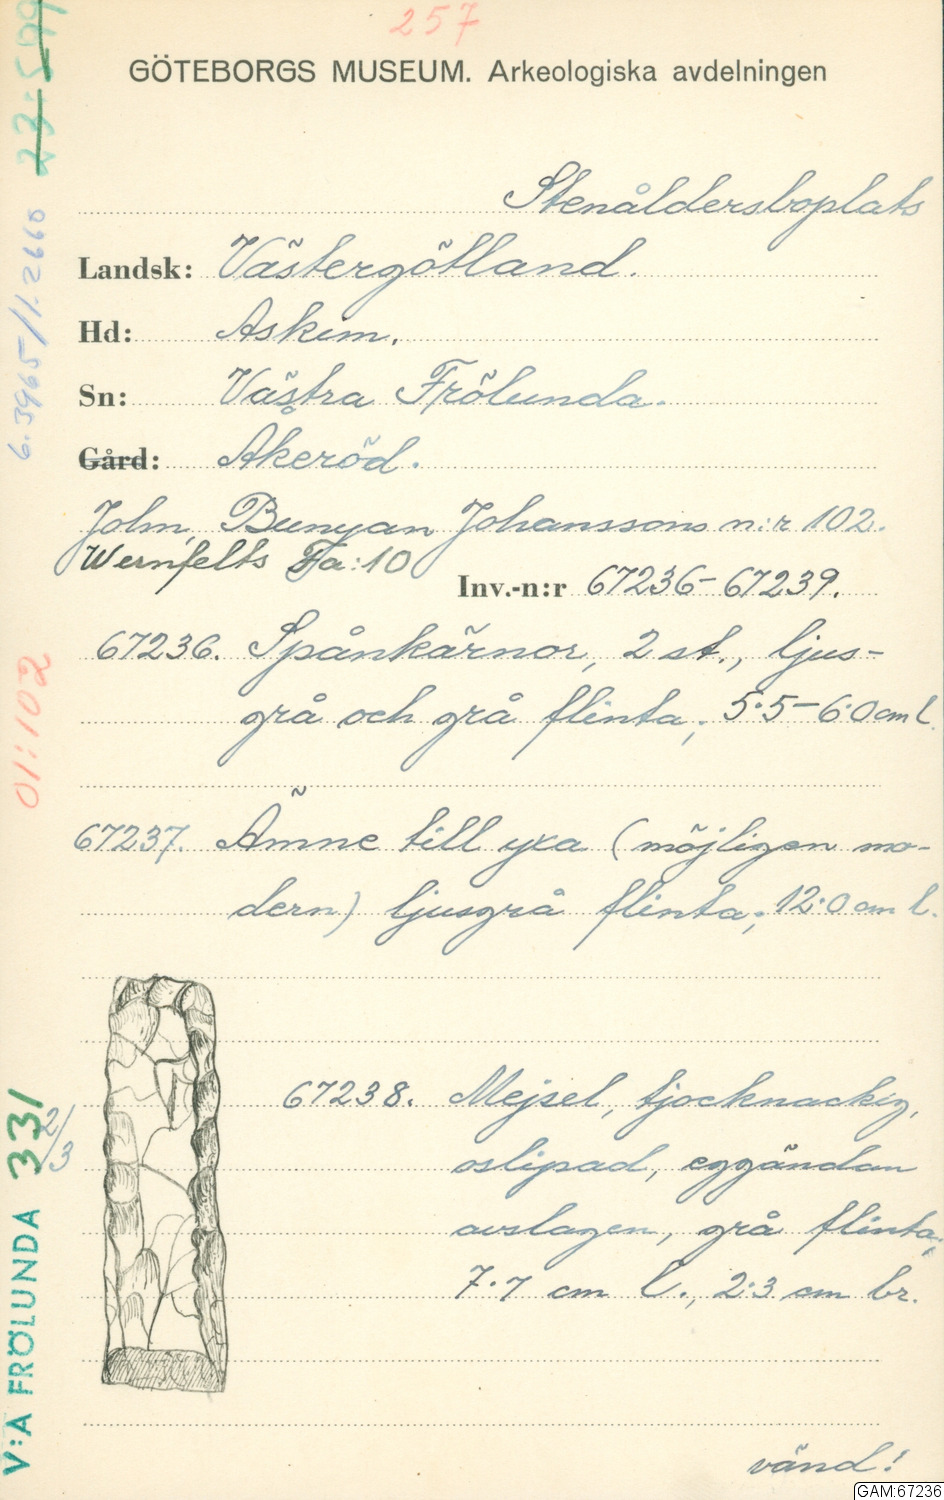 257
GÖTEBORGS MUSEUM. Arkeologiska avdelningen
Stenåldersboplats
Landsk: Västergötland.
Hd: Askim.
Sn: Västra Frölunda.
Gård: Åkeröd.
John Bunyan Johanssons n:r 102.
Wernfelts Fa: 10
Inv.-n:r 67236-67239.
67236. Spånkärnor, 2 st., ljus-
grå och grå flinta; 5.5-6.0 cm l.
67237. Ämne till yxa (möjligen mo-
dern) ljusgrå flinta; 12.0 cm l.
67238. Mejsel, tjocknackig,
oslipad, eggändan
avslagen, grå flinta;
7.7 cm l., 2.3 cm br.
vänd!
GAM:67236
23:599
6.3965/1.2660
01:102
V:A FRÖLUNDA 331
2/3